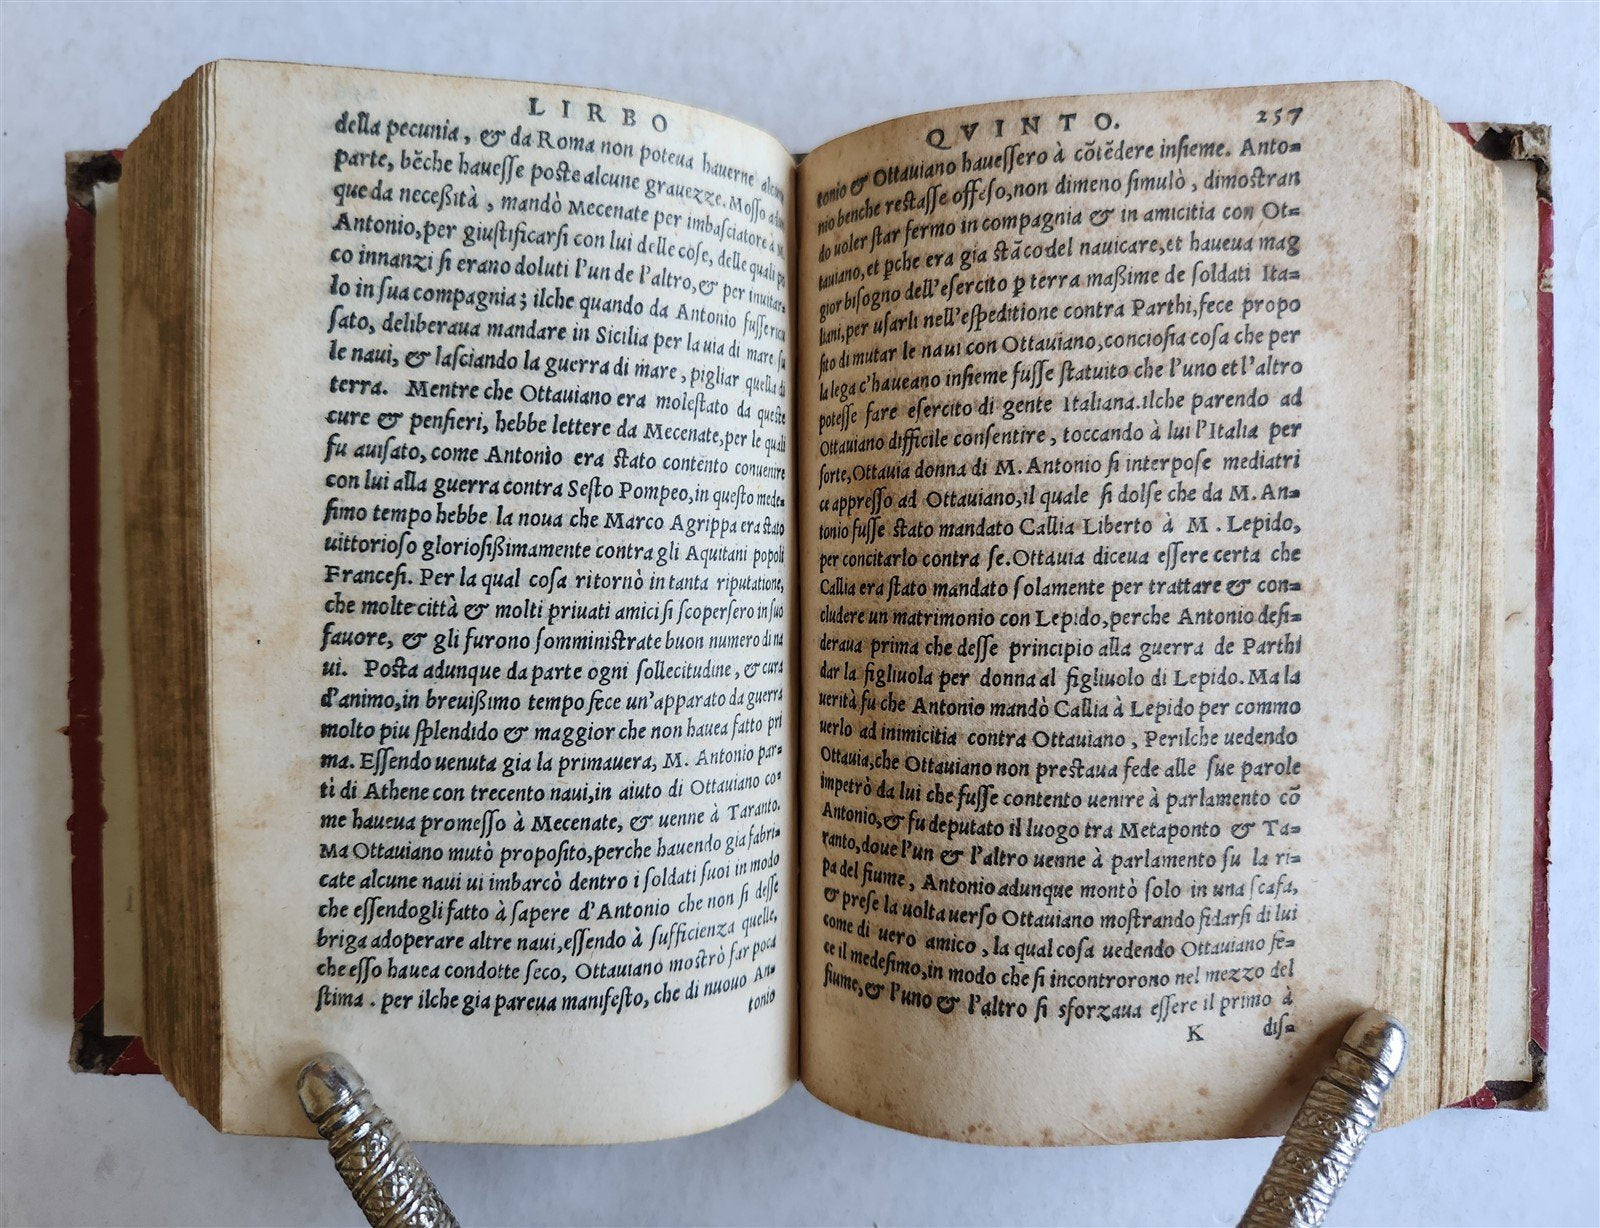 LIRBO
della pecunia, & da Roma non poteua hauerne alcuna
parte, bẽche hauesse poste alcune grauezze. Mosso adun
que da neceßità, mandò Mecenate per imbasciatore a M.
Antonio, per giustificarsi con lui delle cose, delle quali po
co innanzi si erano doluti l'un de l'altro, & per inuitar=
lo in sua compagnia; ilche quando da Antonio fusse ricu
sato, deliberaua mandare in Sicilia per la uia di mare su
le naui, & lasciando la guerra di mare, pigliar quella di
terra. Mentre che Ottauiano era molestato da queste
cure & pensieri, hebbe lettere da Mecenate, per le quali
fu auisato, come Antonio era stato contento conuenire
con lui alla guerra contra Sesto Pompeo, in questo mede=
simo tempo hebbe la noua che Marco Agrippa era stato
uittorioso gloriosißimamente contra gli Aquitani popoli
Francesi. Per la qual cosa ritornò in tanta riputatione,
che molte città & molti priuati amici si scopersero in suo
fauore, & gli furono somministrate buon numero di na
ui. Posta adunque da parte ogni sollecitudine, & cura
d'animo, in breuißimo tempo fece un'apparato da guerra
molto piu splendido & maggior che non hauea fatto pri
ma. Essendo uenuta gia la primauera, M. Antonio par=
tì di Athene con trecento naui, in aiuto di Ottauiano co=
me haueua promesso à Mecenate, & uenne à Taranto.
Ma Ottauiano mutò proposito, perche hauendo gia fabri=
cate alcune naui ui imbarcò dentro i soldati suoi in modo
che essendogli fatto à sapere d'Antonio che non si desse
briga adoperare altre naui, essendo à sufficienza quelle,
che esso hauea condotte seco, Ottauiano mostrò far poca
stima. per ilche gia pareua manifesto, che di nuouo An=
tonio
QVINTO. 257
tonio & Ottauiano hauessero à cõtẽdere insieme. Anto=
nio benche restasse offeso, non dimeno simulò, dimostran
do uoler star fermo in compagnia & in amicitia con Ot=
tauiano, et ꝑche era gia stãco del nauicare, et haueua mag
gior bisogno dell'esercito ꝑ terra maßime de soldati Ita=
liani, per usarli nell'espeditione contra Parthi, fece propo
sito di mutar le naui con Ottauiano, conciosia cosa che per
la lega c'haueano insieme fusse statuito che l'uno et l'altro
potesse fare esercito di gente Italiana. ilche parendo ad
Ottauiano difficile consentire, toccando à lui l'Italia per
sorte, Ottauia donna di M. Antonio si interpose mediatri
ce appresso ad Ottauiano, il quale si dolse che da M. An=
tonio fusse stato mandato Callia Liberto à M. Lepido,
per concitarlo contra se. Ottauia diceua essere certa che
Callia era stato mandato solamente per trattare & con=
cludere un matrimonio con Lepido, perche Antonio desi=
deraua prima che desse principio alla guerra de Parthi
dar la figliuola per donna al figliuolo di Lepido. Ma la
uerità fu che Antonio mandò Callia à Lepido per commo
uerlo ad inimicitia contra Ottauiano, Perilche uedendo
Ottauia, che Ottauiano non prestaua fede alle sue parole
impetrò da lui che fusse contento uenire à parlamento cõ
Antonio, & fu deputato il luogo tra Metaponto & Ta=
ranto, doue l'un & l'altro uenne à parlamento su la ri=
pa del fiume, Antonio adunque montò solo in una scafa,
& prese la uolta uerso Ottauiano mostrando fidarsi di lui
come di uero amico, la qual cosa uedendo Ottauiano fe=
ce il medesimo, in modo che si incontrorono nel mezzo del
fiume, & l'uno & l'altro si sforzaua essere il primo à
K dis=